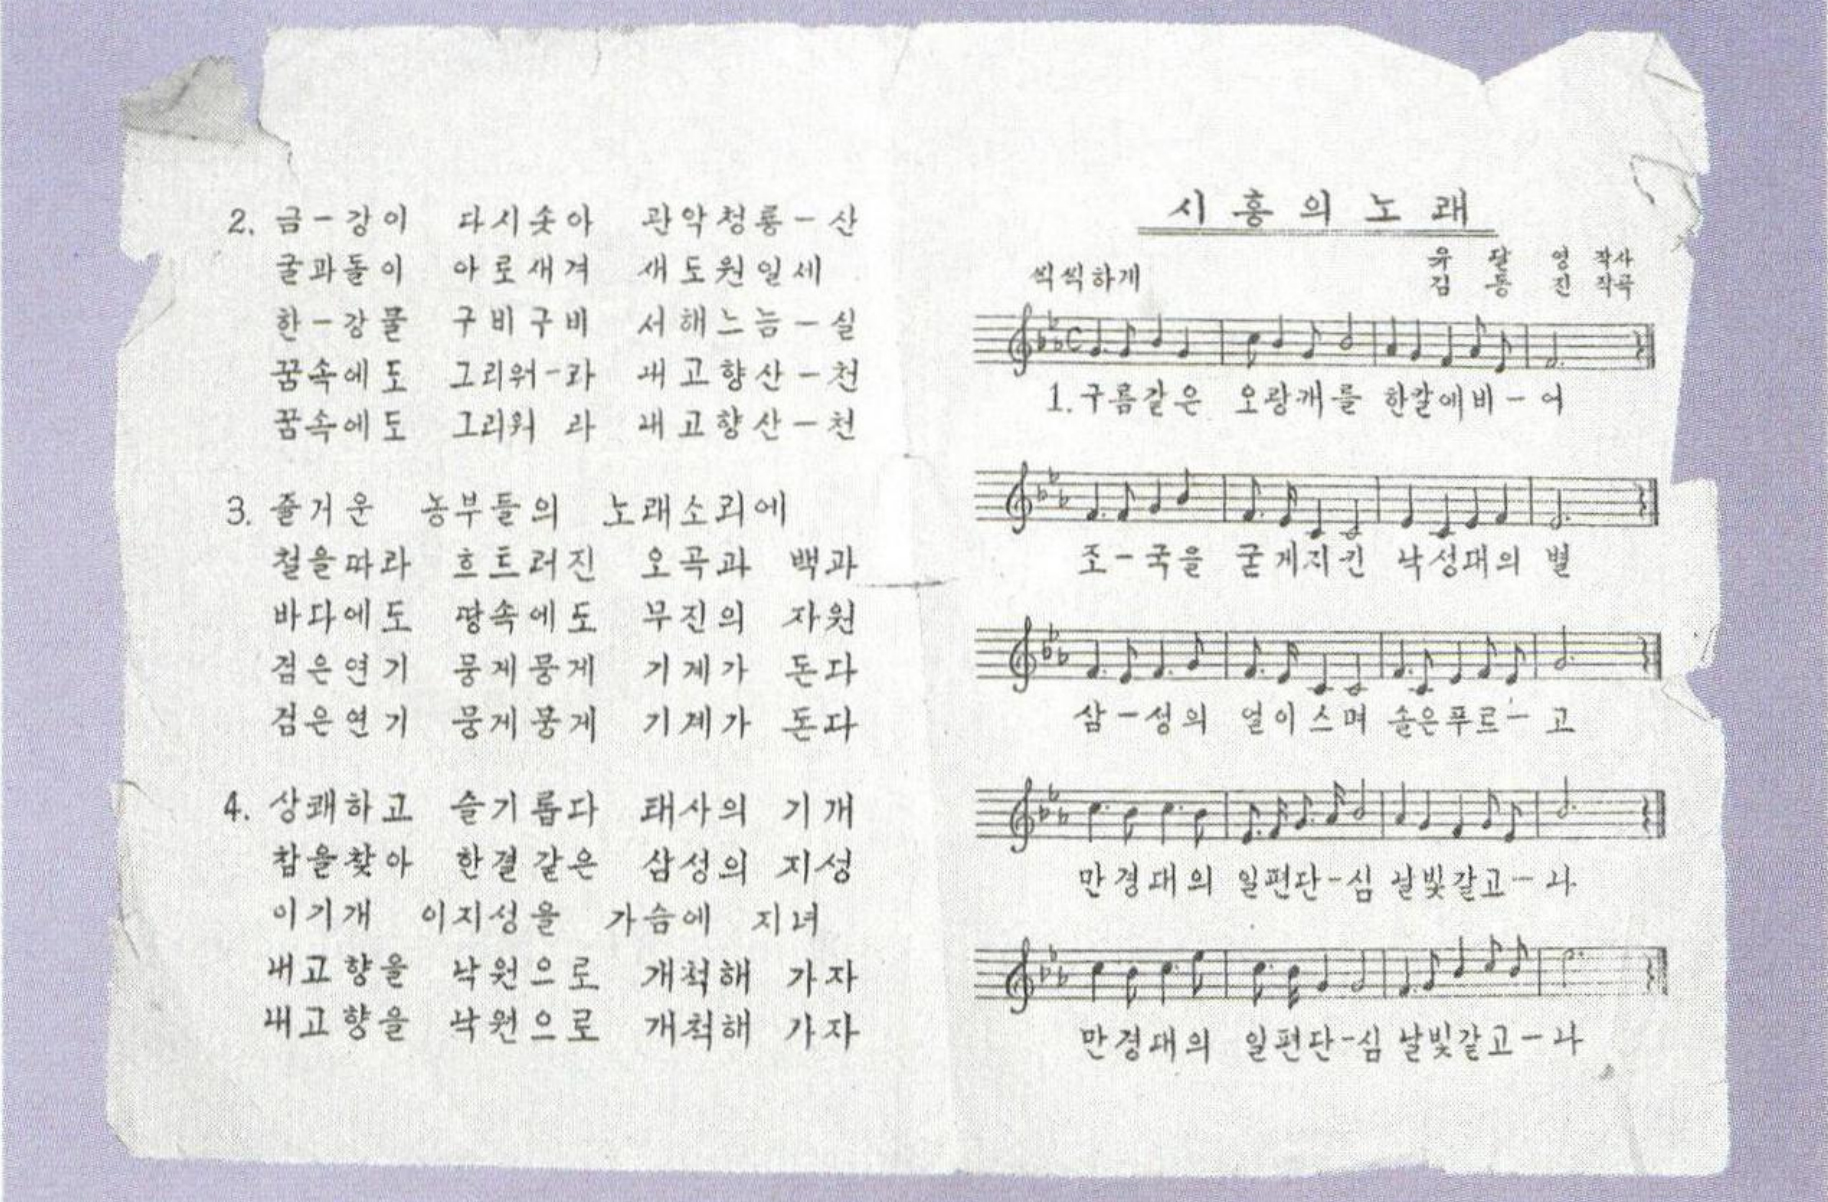 시흥의 노래
유달영 작사
김동진 작곡
씩씩하게
1. 구름같은 오랑캐를 한칼에비-어
조-국을 굳게지킨 낙성대의 별
삼-성의 얼이스며 솔은푸르-고
만경대의 일편단-심 날빛갈고-나
만경대의 일편단-심 날빛갈고-나
2. 금-강이 다시솟아 관악청룡-산
굴과돌이 아로새겨 새도원일세
한-강물 구비구비 서해느늠-실
꿈속에도 그리워-라 내고향산-천
꿈속에도 그리워 라 내고향산-천
3. 즐거운 농부들의 노래소리에
철을따라 흐트러진 오곡과 백과
바다에도 땅속에도 무진의 자원
검은연기 뭉게뭉게 기계가 돈다
검은연기 뭉게뭉게 기계가 돈다
4. 상쾌하고 슬기롭다 태사의 기개
참을찾아 한결같은 삼성의 지성
이기개 이지성을 가슴에 지녀
내고향을 낙원으로 개척해 가자
내고향을 낙원으로 개척해 가자